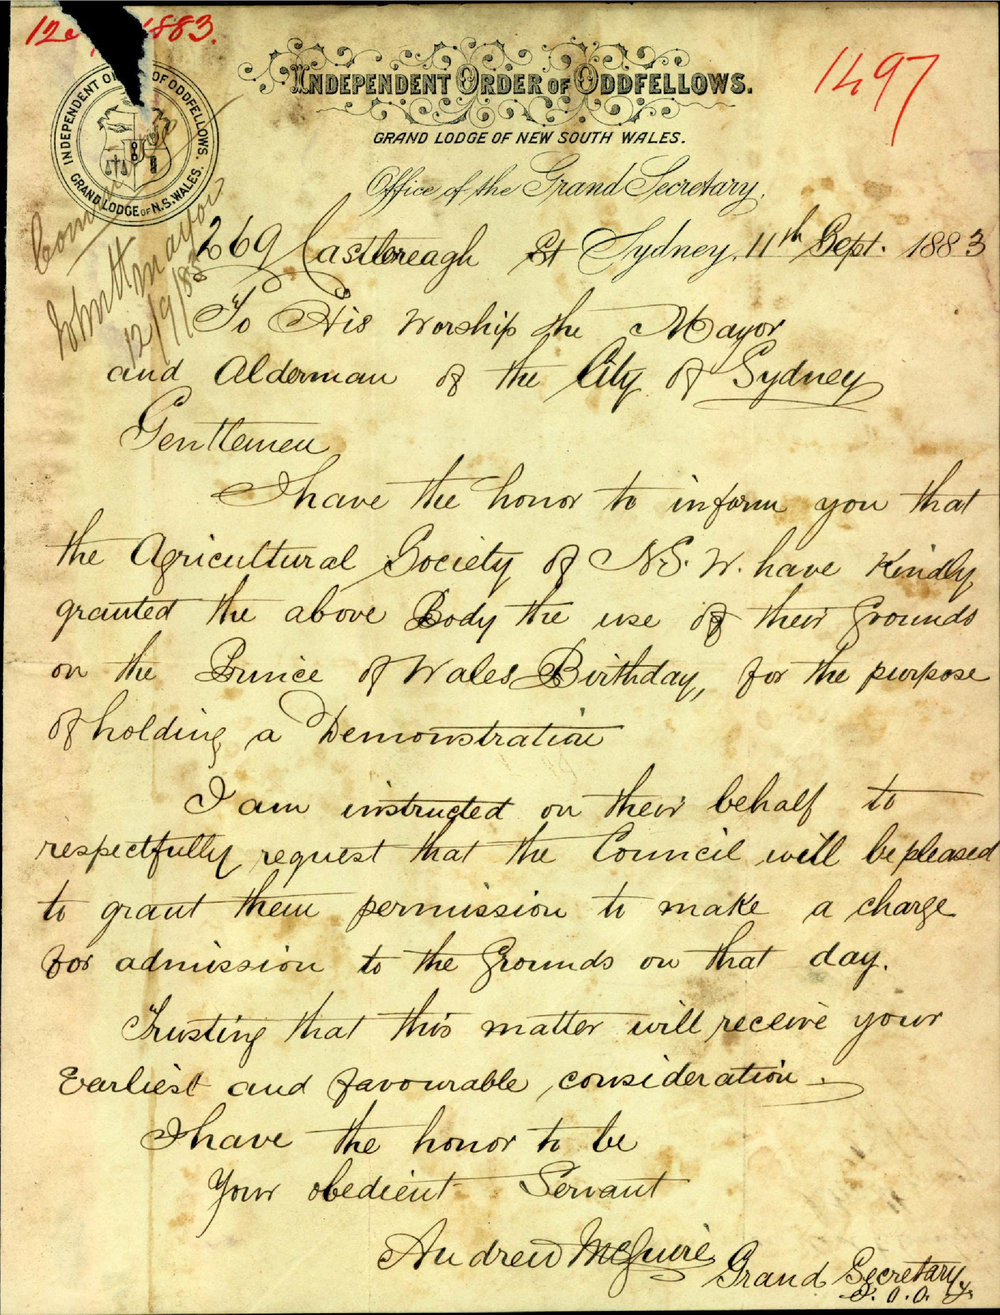 1883.
1497
INDEPENDENT ORDER OF ODDFELLOWS.
GRAND LODGE OF NEW SOUTH WALES.
INDEPENDENT OF ODDFELLOWS.
GRAND LODGE OF N.S.WALES.
Office of the Grand Secretary,
269 Castlereagh St Sydney, 11th Sept. 1883
Mayor
12/9/83
To His Worship the Mayor
and Alderman of the City of Sydney
Gentlemen
I have the honor to inform you that
the Agricultural Society of N.S.W. have Kindly
granted the above Body the use of their Grounds
on the Prince of Wales Birthday, for the purpose
of holding a Demonstration
I am instructed on their behalf to
respectfully request that the Council will be pleased
to grant them permission to make a charge
for admission to the Grounds on that day.
Trusting that this matter will receive your
Earliest and favourable consideration.
I have the honor to be
Your obedient Servant
Andrew McGuire
Grand Secretary
I.O.O.F.